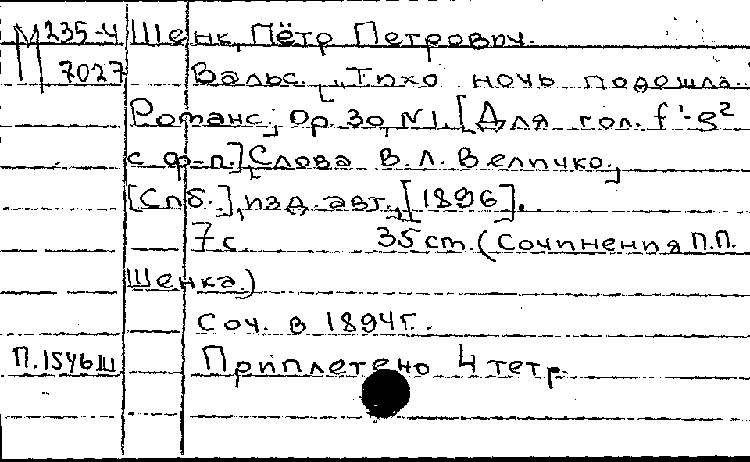 М 235-4 Шенк, Пётр Петрович.
7027 Вальс. „Тихо ночь подошла.
Романс, Op. 30, N1. [Для гол. f'-g²
с ф-п.] Слова В.Л. Величко.
[Спб.], изд. авт., [1896].
7 с. 35 cm. (Сочинения П.П.
Шенка.)
Соч. в 1894г.
П.1546ш Приплетено 4 тетр.